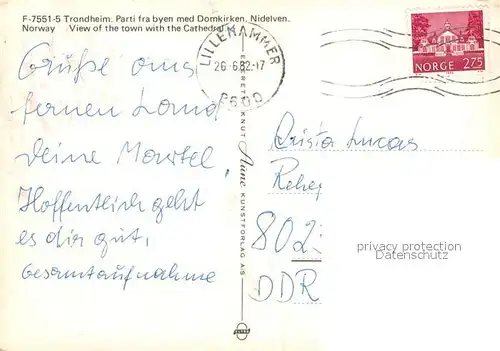 F-7551-5 Trondheim. Parti fra byen med Domkirken, Nidelven.
Norway View of the town with the Cathedral
LILLEHAMMER
26-6.82.-17
2600
NORGE 275
Grüße aus
fernen Land
Deine Martel,
Hoffentlich geht
es dir gut,
Gesamtaufnahme
ENERETT: KNUT Aune KUNSTFORLAG AS
Crista Lucas
802
DDR
privacy protection
Datenschutz